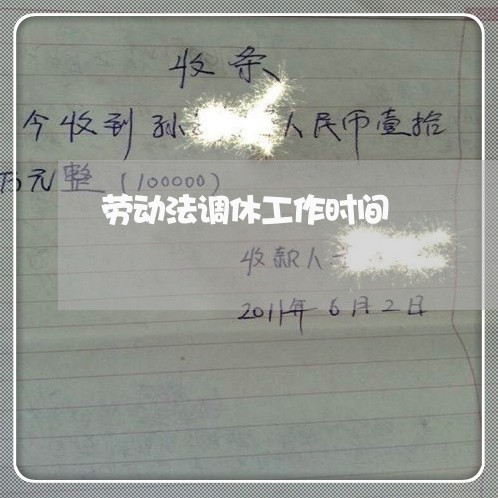 收条
今收到孙 人民币壹拾
万元整（100000）
劳动法调休工作时间
收款人
2011年6月2日